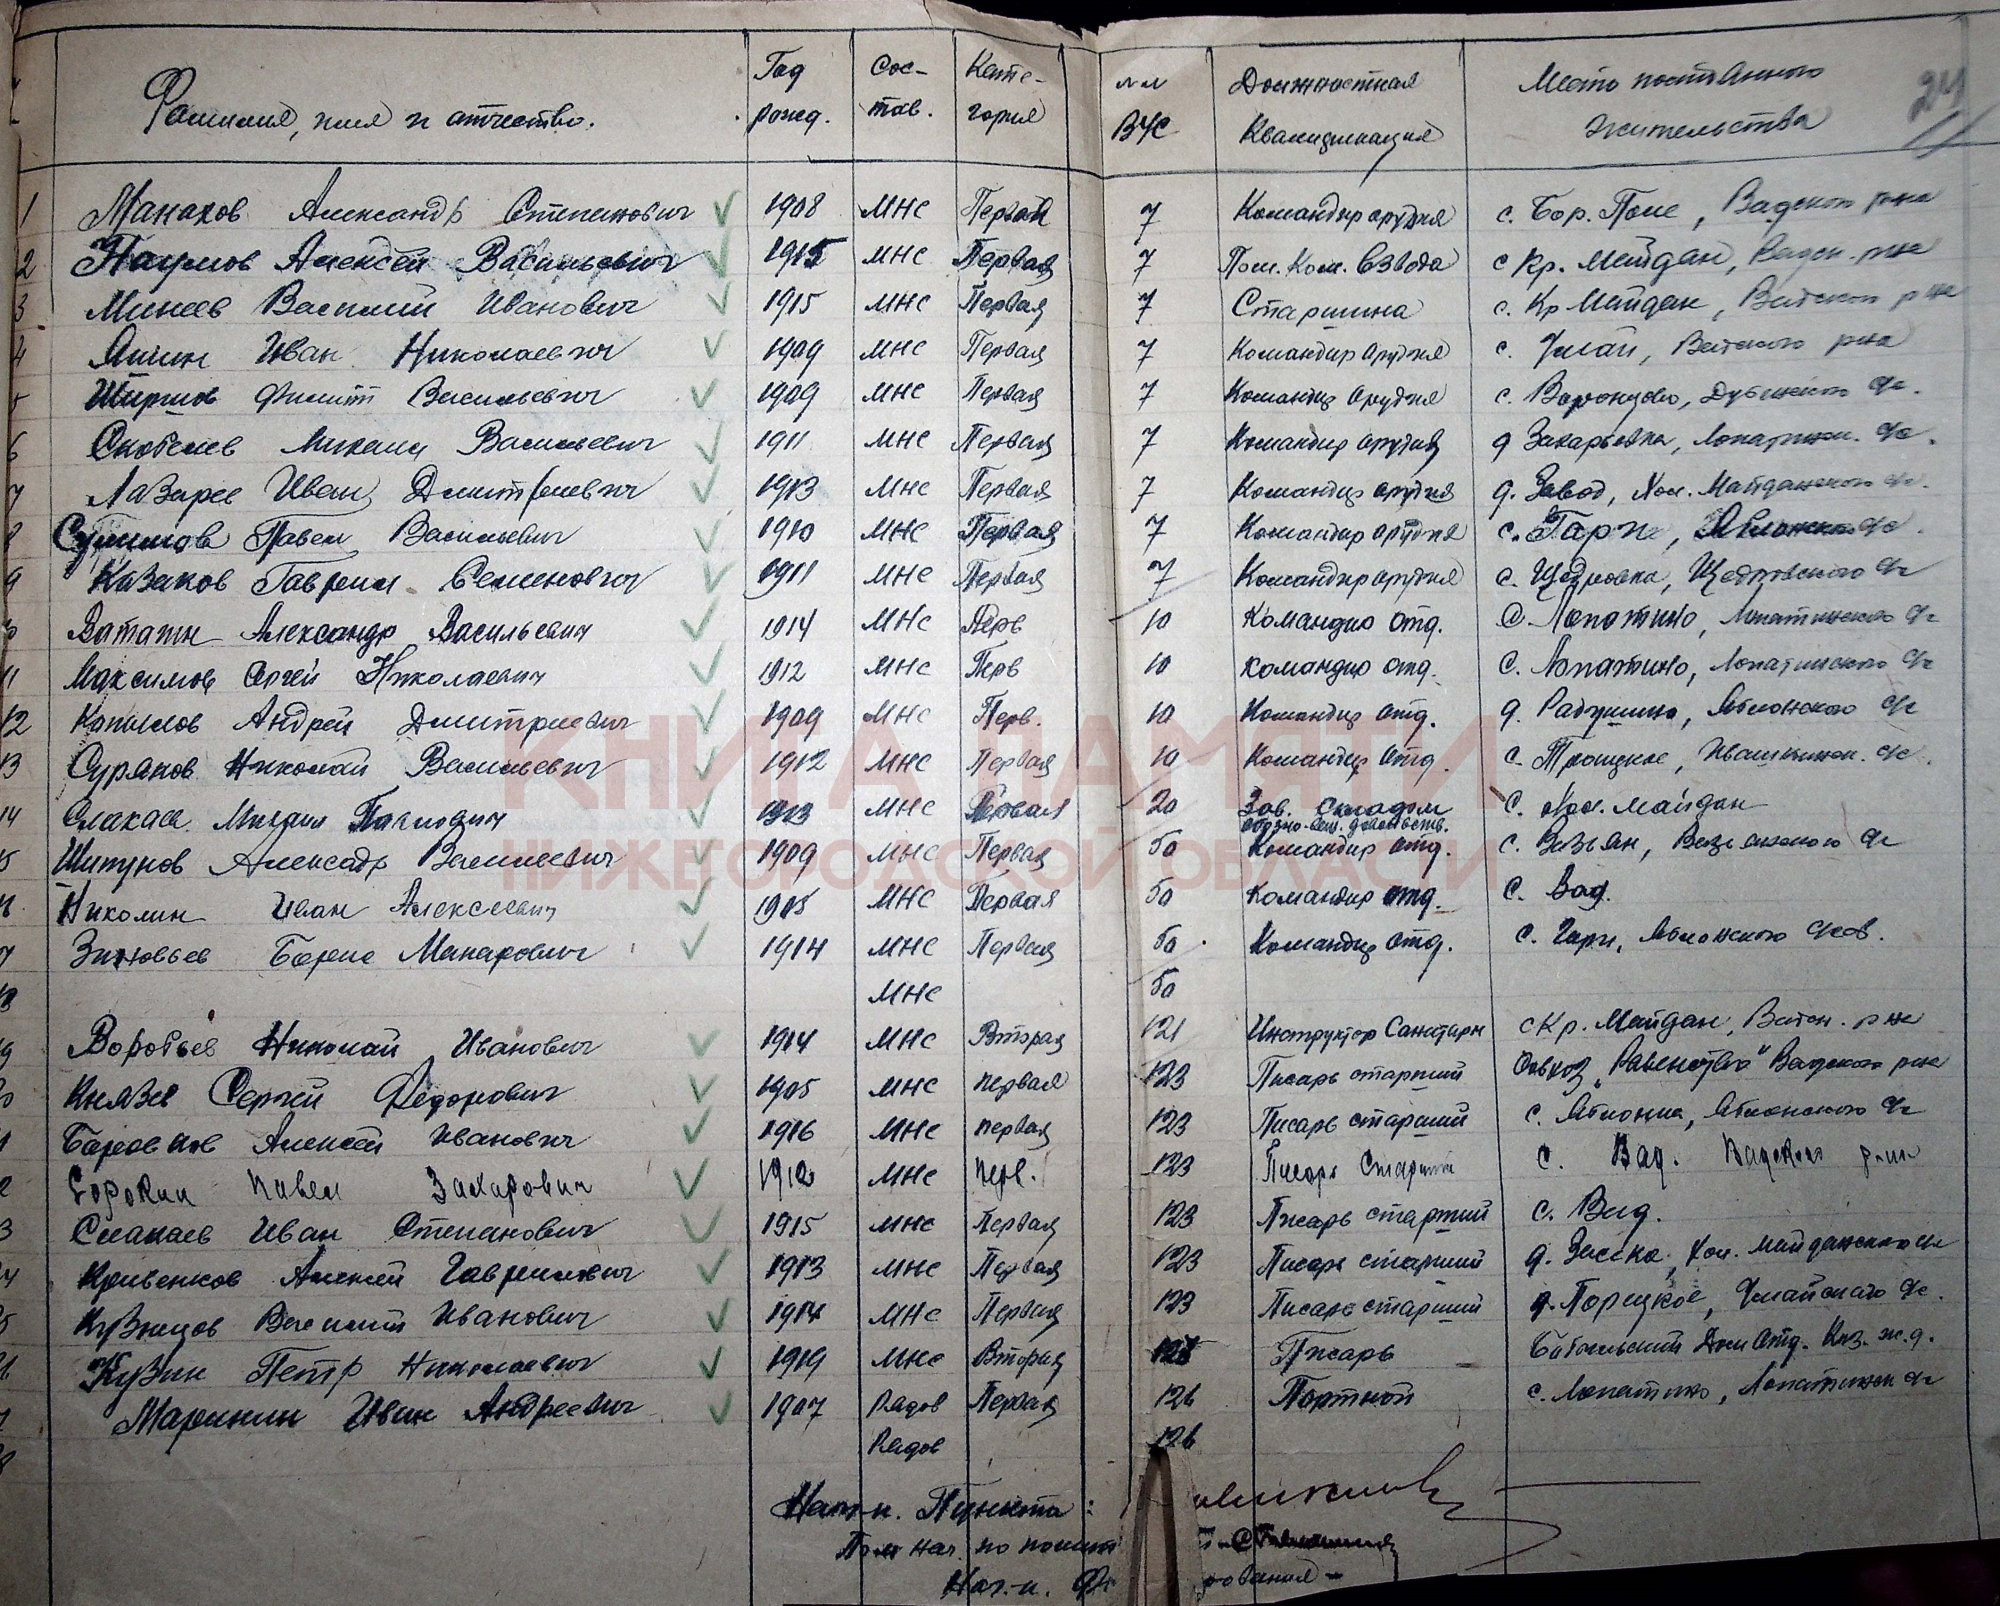 Фамилия, имя и отчество. Год рожд. Сос-тав. Кате-гория №№ ВУС Должностная Квалификация Место постоянного жительства 24
1 Манахов Александр Степанович 1908 МНС Первая 7 Командир орудия с. Бор. Поле, Вадского р-на
2 Наумов Алексей Васильевич 1915 МНС Первая 7 Пом. Ком. Взвода с Кр. Майдан, Вадск. р-на
3 Минеев Василий Иванович 1915 МНС Первая 7 Старшина с. Кр Майдан, Вадского р-на
4 Яшин Иван Николаевич 1909 МНС Первая 7 Командир орудия с. Умай, Вадского р-на
5 Ширшов Филипп Васильевич 1909 МНС Первая 7 Командир орудия с. Воронцово, Дубенского с/с.
6 Скобелев Михаил Васильевич 1911 МНС Первая 7 Командир орудия д Захарьевка, Лопатинск. с/с.
7 Лазарев Иван Дмитриевич 1913 МНС Первая 7 Командир орудия д. Завод, Хол. Майданского с/с.
8 Павел Васильевич 1910 МНС Первая 7 Командир орудия с. Гари, Яблонского с/с.
9 Казаков Гаврил Семенович 1911 МНС Первая 7 Командир орудия с. Щедровка, Щедровского с/с
10 Ватагин Александр Васильевич 1914 МНС Перв 10 Командир отд. С. Лопатино, Лопатинского с/с
11 Максимов Сергей Николаевич 1912 МНС Перв 10 командир отд. С. Лопатино, Лопатинского с/с
12 Копылов Андрей Дмитриевич 1909 МНС Перв. 10 Командир отд. д. Радушино, Яблонского с/с
13 Суряков Николай Васильевич 1912 МНС Первая 10 Командир отд. с. Троицкое, Ивашкинск. с/с.
14 Михаил Павлович 1913 МНС Первая 20 Зав. складом С. Хол. Майдан
обозно-вещ. довольств.
15 Шипунов Александр Васильевич 1909 МНС Первая 50 Командир отд. с. Вазьян, Вазьянского с/с
16 Николин Иван Алексеевич 1905 МНС Первая 50 Командир отд. С. Вад.
17 Зиновьев Борис Макарович 1914 МНС Первая 50 Командир отд. с. Гари, Яблонского с/сов.
18 МНС 50
19 Воробьев Николай Иванович 1914 МНС Вторая 121 Инструктор Санитарн с Кр. Майдан, Вадск. р-на
20 Князев Сергей Федорович 1905 МНС первая 123 Писарь старший Совхоз „Равенство" Вадского р-на
21 Алексей Иванович 1916 МНС первая 123 Писарь старший с. Яблонка, Яблонского с/с
22 Сорокин Павел Захарович 1912 МНС перв. 123 Писарь Старший с. Вад. Вадского р-на
23 Слакаев Иван Степанович 1915 МНС Первая 123 Писарь старший с. Вад.
24 Кривенков Алексей Гаврилович 1913 МНС Первая 123 Писарь старший д. Засека, Хол. Майданского с/с
25 Кузнецов Василий Иванович 1914 МНС Первая 123 Писарь старший д. Порецкое, Умайского с/с.
26 Кузин Петр Николаевич 1919 МНС Вторая Писарь Дом Отд. Каз. ж.д.
27 Маринин Иван Андреевич 1907 Рядов Первая 126 Портной с. Лопатино, Лопатинск с/с
28 Рядов 126
Нач-к. Пункта:
Пом нач. по полит
Нач-к.
КНИГА ПАМЯТИ
НИЖЕГОРОДСКОЙ ОБЛАСТИ